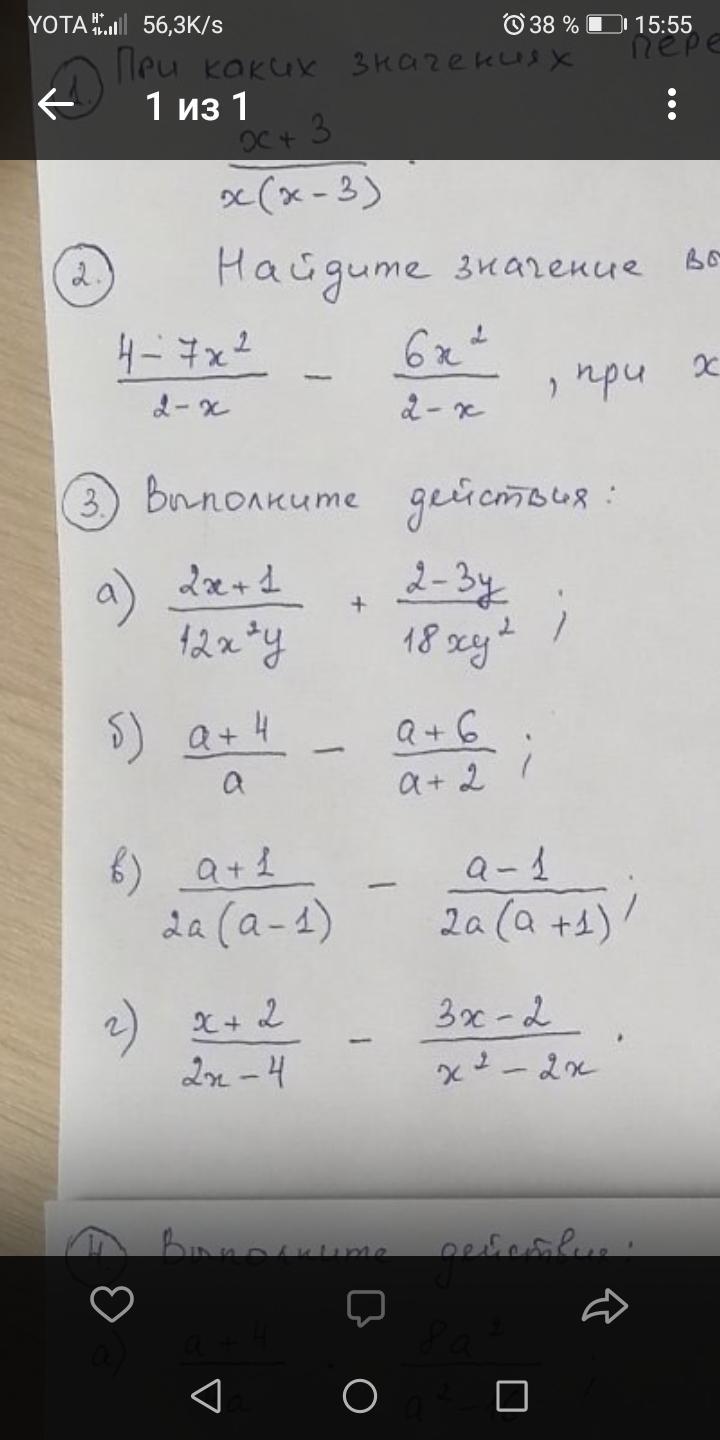 YOTA H+ 56,3K/s 38 % 15:55
1. При каких значениях
1 из 1
x + 3
x(x - 3)
2. Найдите значение
4 - 7x² / 2 - x - 6x² / 2 - x , при x
3. Выполните действия:
а) 2x + 1 / 12x²y + 2 - 3y / 18xy² ;
б) a + 4 / a - a + 6 / a + 2 ;
в) a + 1 / 2a(a - 1) - a - 1 / 2a(a + 1) ;
г) x + 2 / 2x - 4 - 3x - 2 / x² - 2x .
4. Выполните действие:
а) a + 4 / a · 8a² / a² - 16 ;